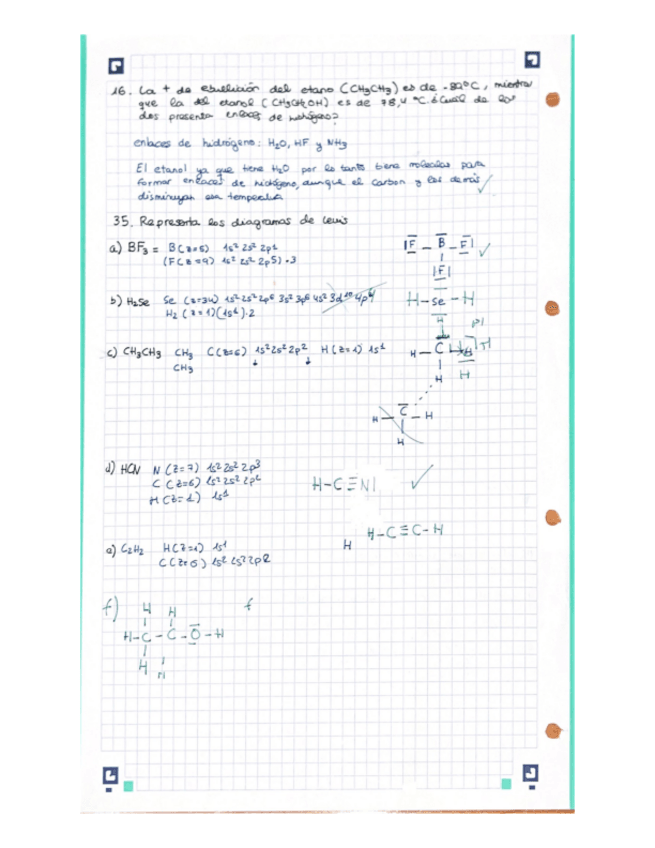 16. La t de ebullición del etano (CH3CH3) es de -89ºC, mientras
que la del etanol (CH3CH2OH) es de 78,4 ºC. ¿Cuál de los
dos presenta enlaces de hidrógeno?
enlaces de hidrógeno: H2O, HF y NH3
El etanol ya que tiene H2O por lo tanto tiene moléculas para
formar enlaces de hidrógeno, aunque el carbon y los demás
disminuyan esa temperatura
35. Representa los diagramas de Lewis
a) BF3 = B(z=5) 1s² 2s² 2p1
(F(z=9) 1s² 2s² 2p5)·3
|F - B - F|
|F|
b) H2Se Se (z=34) 1s² 2s² 2p6 3s² 3p6 4s² 3d10 4p4
H2 (z=1)(1s1)·2
H-Se-H
c) CH3CH3 CH3 C(z=6) 1s² 2s² 2p2 H(z=1) 1s1
CH3
H
H - C
H H
C
H - C - H
H
d) HCN N(z=7) 1s² 2s² 2p3
C(z=6) 1s² 2s² 2p2
H(z=1) 1s1
H-C≡N|
e) C2H2 H(z=1) 1s1
C(z=6) 1s² 2s² 2p2
H-C≡C-H
H
f) H H f
H-C-C-O-H
H H